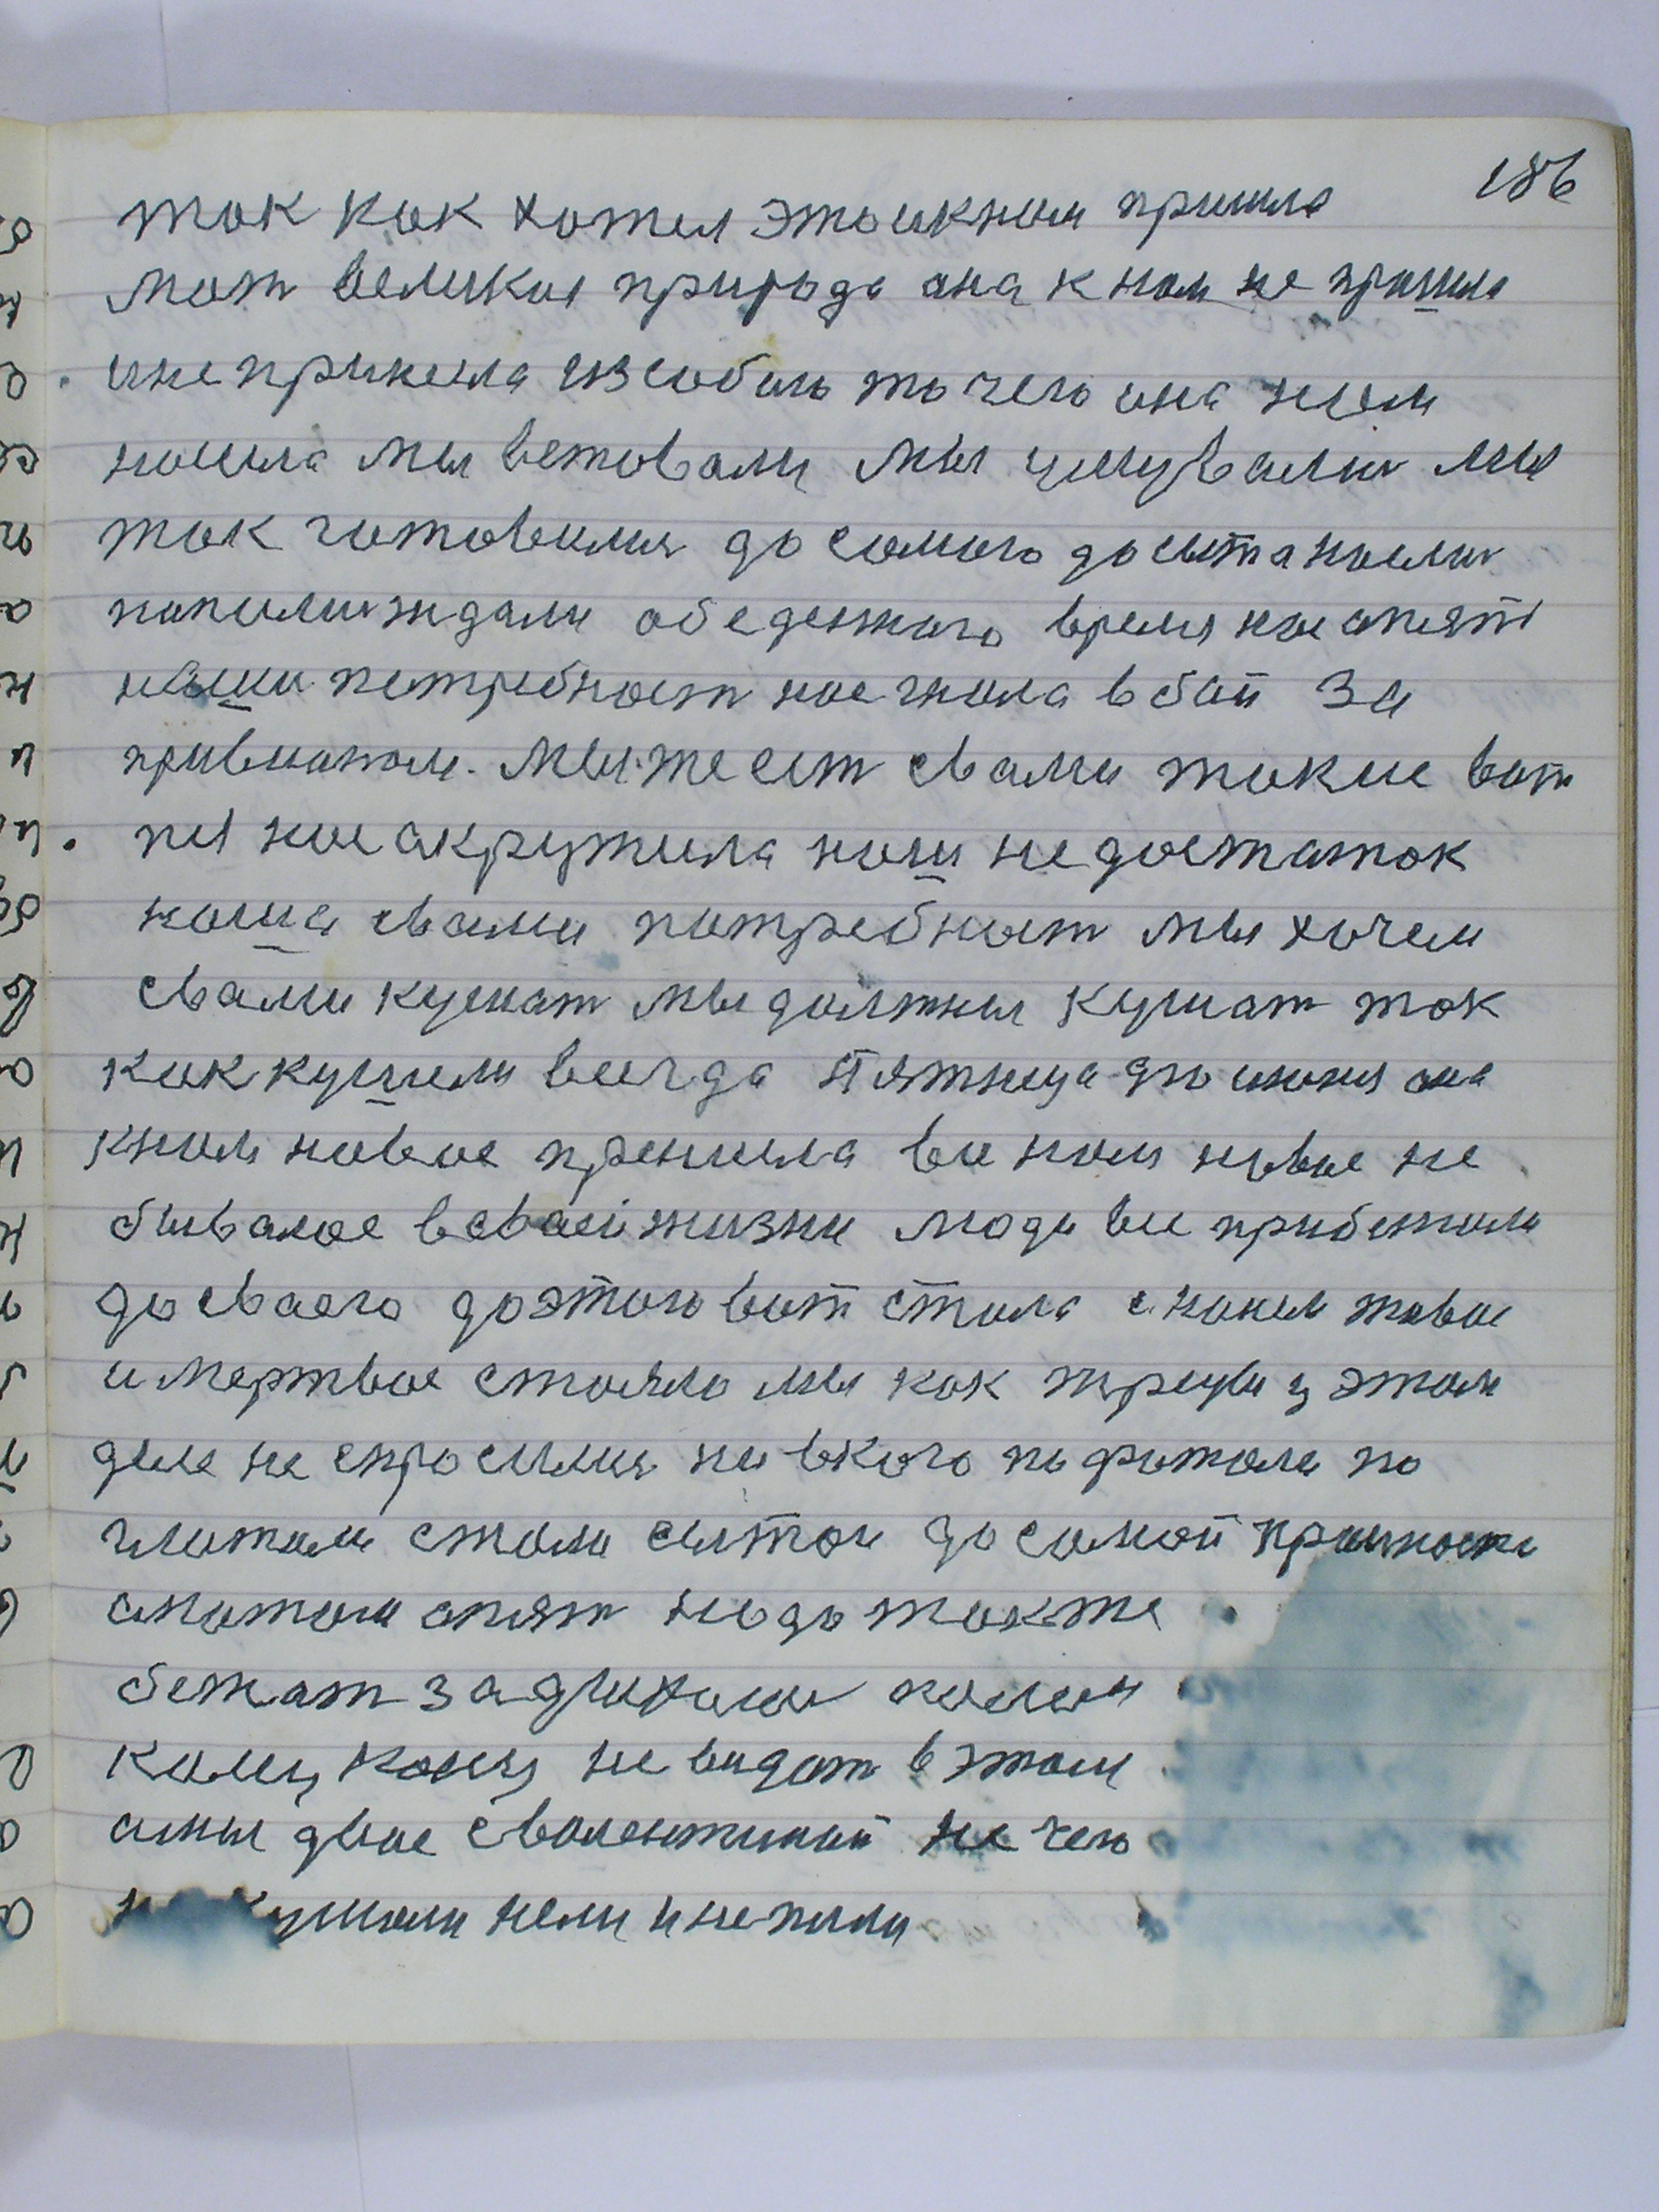 186
так как хотел это и к нам пришла
мат великая природа она к нам не пришла
и не принесла из собою то чего она нам
носила мы вставали мы умувалис мы
так готовилися до самого досыта наелис
напилис ждали обеденного время нас опят
наша петребност нас гнала в бой за
привматом. Мы же ест свами такие вот
нас акружила наш недостаток
наша свами потребност мы хочем
свами кушат мы должны кушат так
как кушали всегда пятница дню июня она
к нам новае пренесла всю нам новае не
бывалое в сваей жизни люди все прибежали
до сваего до этого вот стола с нами живое
и мертвое стояло мы как жрецы у этом
деле не спросилися ни в кого по
глотали стали сытаи до самой крайности
а патом опят надо также
бежат за другими
концу не видат в этом
аны двое свалентиной не чего
кушали нели и непили